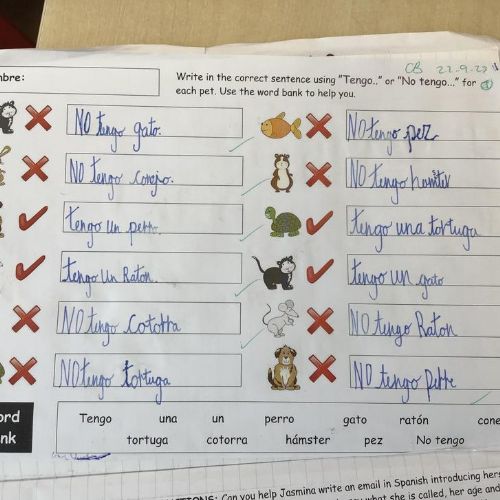 mbre:
Write in the correct sentence using "Tengo.." or "No tengo..." for
each pet. Use the word bank to help you.
CB 22-9-2
NO tengo gato.
NO tengo pez
NO tengo conejo.
NO tengo hamster
tengo un perro.
tengo una tortuga
tengo un Raton.
tengo un gato
NO tengo cotorra
NO tengo Raton
NO tengo tortuga
NO tengo perre
ord
nk
Tengo una un perro gato ratón cone
tortuga cotorra hámster pez No tengo
IONS: Can you help Jasmina write an email in Spanish introducing hers
what she is called, her age and